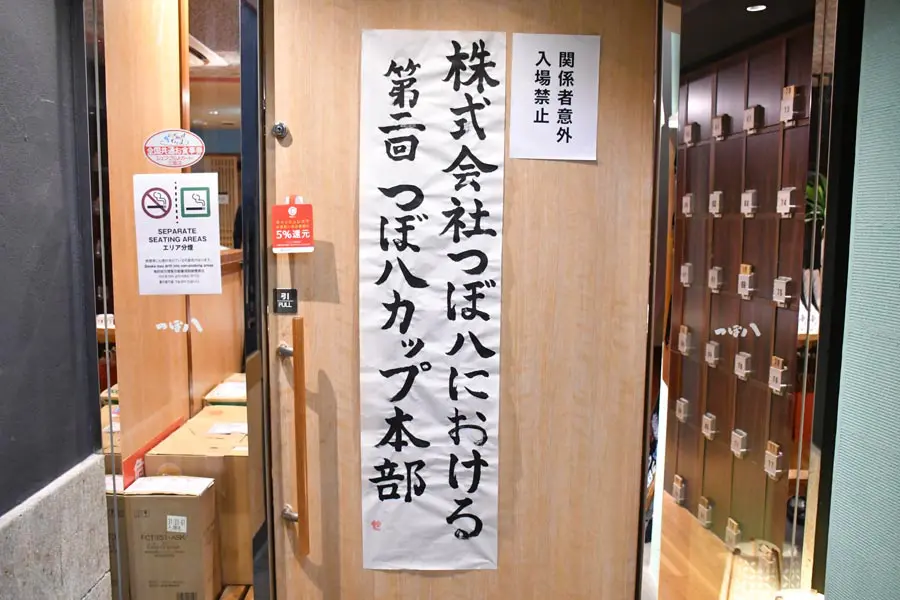 株式会社つぼ八における
第二回 つぼ八カップ本部
関係者意外
入場禁止
全国共通お食事券
SEPARATE
SEATING AREAS
エリア分煙
5%還元
引
PULL
つぼ八
つぼ八